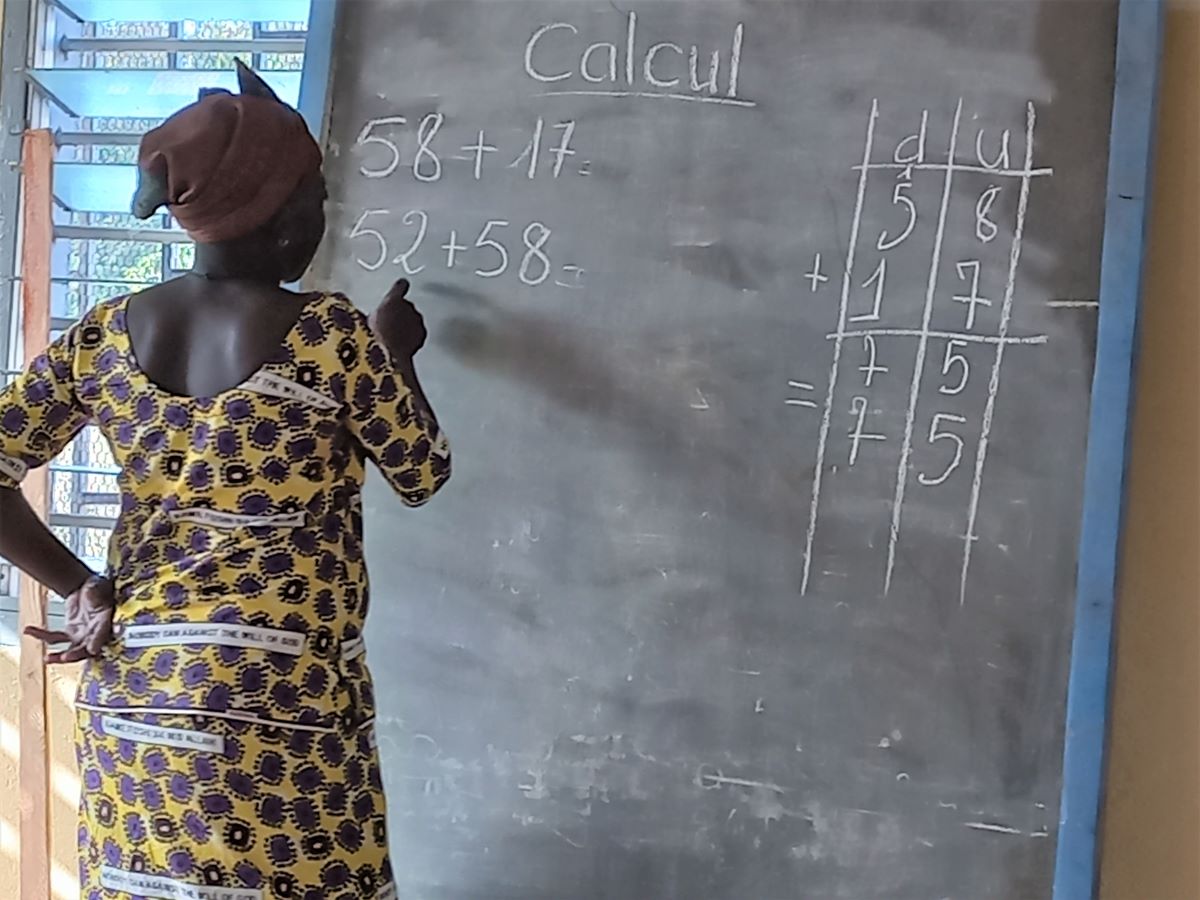 Calcul
58+17=
52+58=
d u
5 8
+ 1 7
= 7 5
7 5
THE WILL OF
NOBODY CAN AGAINST THE WILL OF GOD
NOBODY CAN AGAINST THE WILL OF GOD